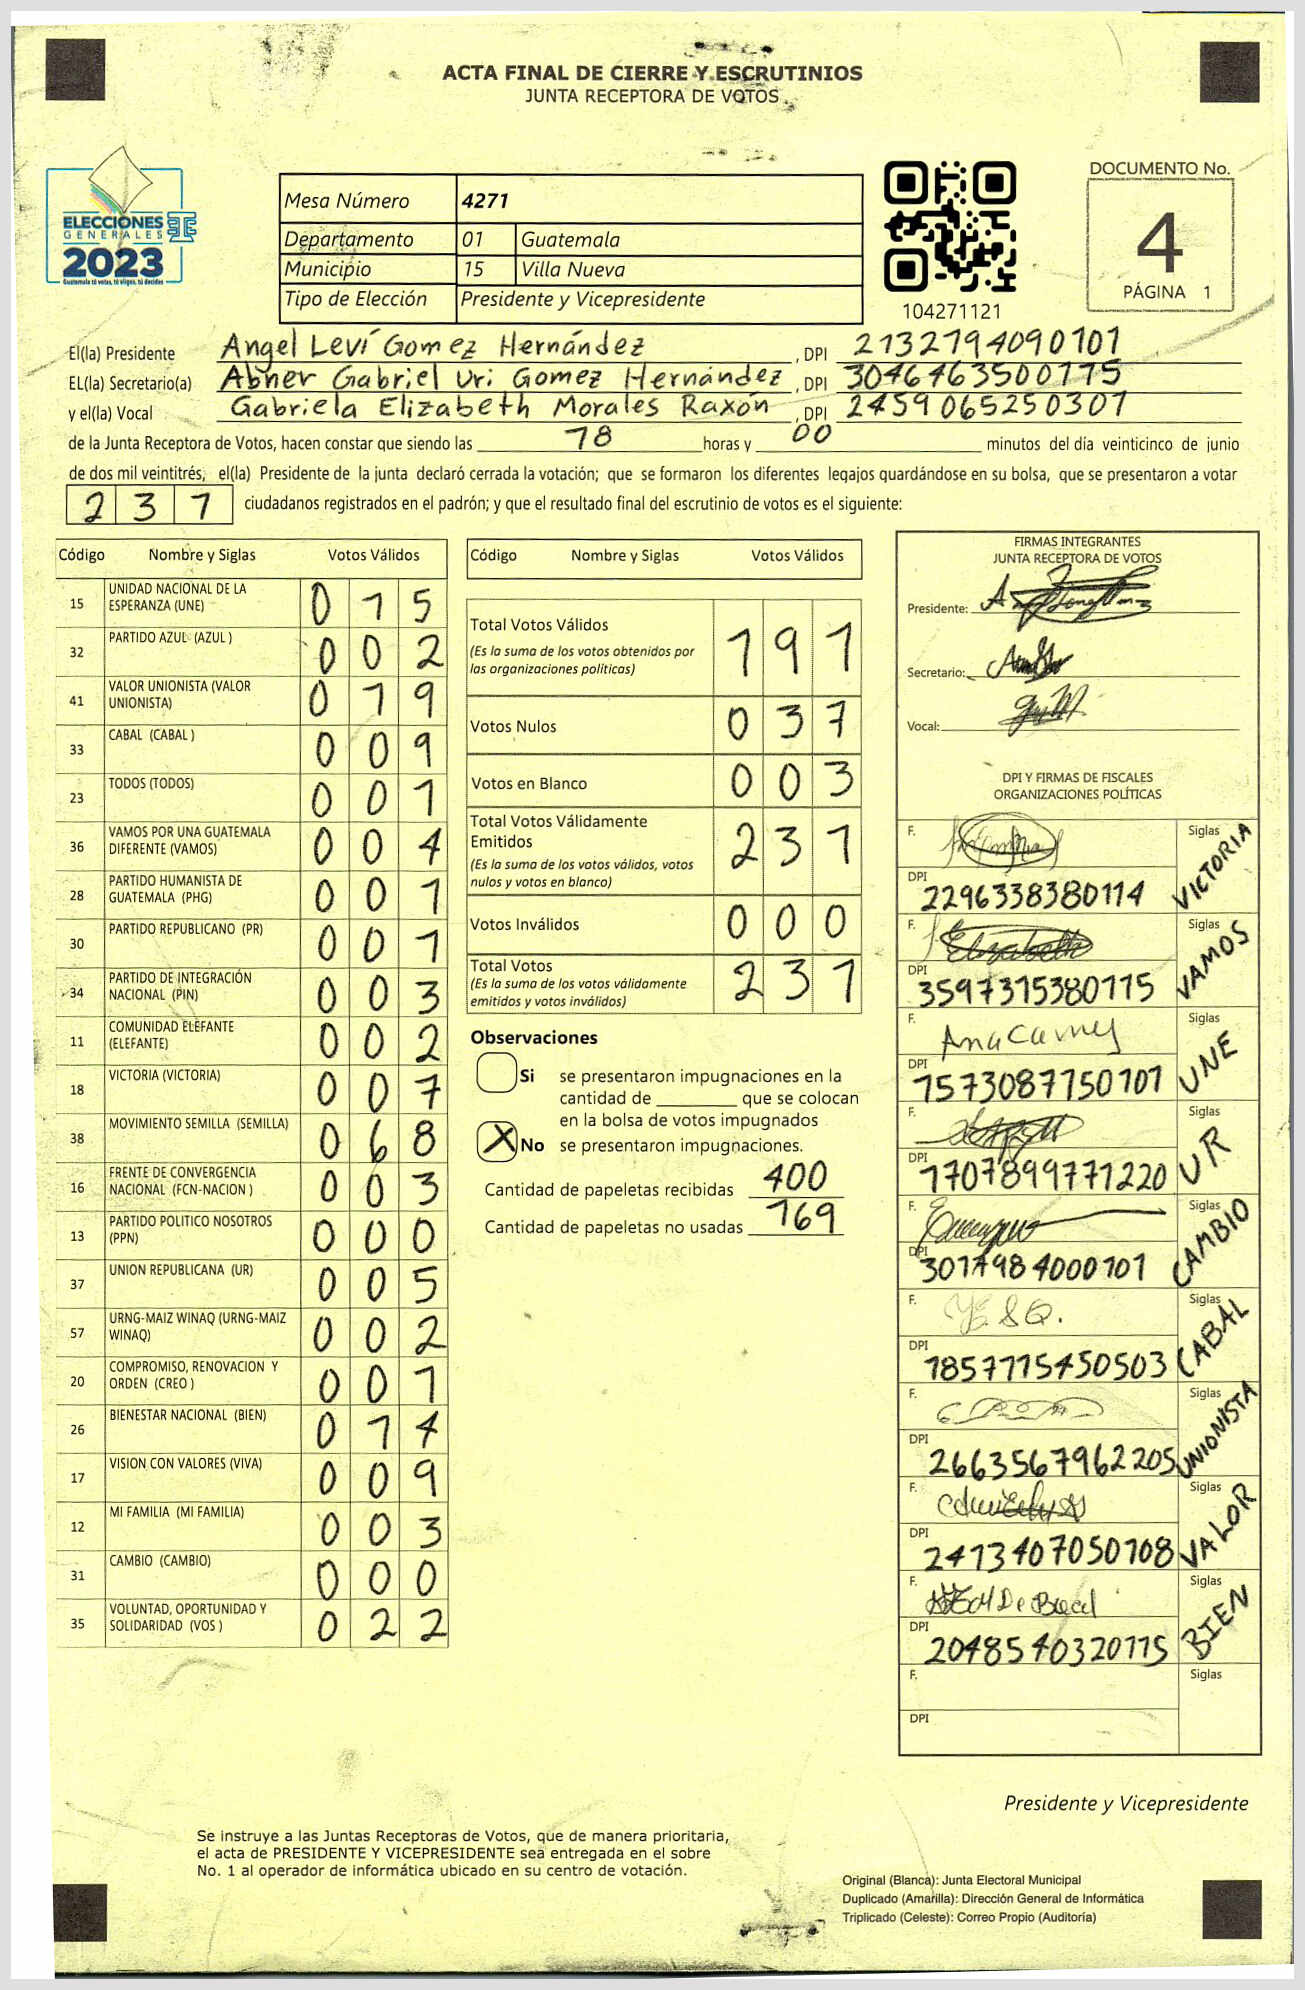 ACTA FINAL DE CIERRE Y ESCRUTINIOS
JUNTA RECEPTORA DE VOTOS
ELECCIONES
GENERALES
2023
Guatemala tú votas, tú eliges, tú decides
Mesa Número 4271
Departamento 01 Guatemala
Municipio 15 Villa Nueva
Tipo de Elección Presidente y Vicepresidente
104271121
DOCUMENTO No.
4
PÁGINA 1
El(la) Presidente Angel Leví Gomez Hernández , DPI 2132794090101
EL(la) Secretario(a) Abner Gabriel Uri Gomez Hernández , DPI 3046463500115
y el(la) Vocal Gabriela Elizabeth Morales Raxón , DPI 2459065250301
de la Junta Receptora de Votos, hacen constar que siendo las 18 horas y 00 minutos del día veinticinco de junio
de dos mil veintitrés, el(la) Presidente de la junta declaró cerrada la votación; que se formaron los diferentes legajos quardándose en su bolsa, que se presentaron a votar
231 ciudadanos registrados en el padrón; y que el resultado final del escrutinio de votos es el siguiente:
Código Nombre y Siglas Votos Válidos
15 UNIDAD NACIONAL DE LA ESPERANZA (UNE) 015
32 PARTIDO AZUL (AZUL ) 002
41 VALOR UNIONISTA (VALOR UNIONISTA) 019
33 CABAL (CABAL ) 009
23 TODOS (TODOS) 001
36 VAMOS POR UNA GUATEMALA DIFERENTE (VAMOS) 004
28 PARTIDO HUMANISTA DE GUATEMALA (PHG) 001
30 PARTIDO REPUBLICANO (PR) 001
34 PARTIDO DE INTEGRACIÓN NACIONAL (PIN) 003
11 COMUNIDAD ELEFANTE (ELEFANTE) 002
18 VICTORIA (VICTORIA) 007
38 MOVIMIENTO SEMILLA (SEMILLA) 068
16 FRENTE DE CONVERGENCIA NACIONAL (FCN-NACION ) 003
13 PARTIDO POLITICO NOSOTROS (PPN) 000
37 UNION REPUBLICANA (UR) 005
57 URNG-MAIZ WINAQ (URNG-MAIZ WINAQ) 002
20 COMPROMISO, RENOVACION Y ORDEN (CREO ) 001
26 BIENESTAR NACIONAL (BIEN) 014
17 VISION CON VALORES (VIVA) 009
12 MI FAMILIA (MI FAMILIA) 003
31 CAMBIO (CAMBIO) 000
35 VOLUNTAD, OPORTUNIDAD Y SOLIDARIDAD (VOS ) 022
Código Nombre y Siglas Votos Válidos
Total Votos Válidos 191
(Es la suma de los votos obtenidos por
las organizaciones políticas)
Votos Nulos 037
Votos en Blanco 003
Total Votos Válidamente
Emitidos 231
(Es la suma de los votos válidos, votos
nulos y votos en blanco)
Votos Inválidos 000
Total Votos 231
(Es la suma de los votos válidamente
emitidos y votos inválidos)
Observaciones
Si se presentaron impugnaciones en la
cantidad de ________ que se colocan
en la bolsa de votos impugnados
X No se presentaron impugnaciones.
Cantidad de papeletas recibidas 400
Cantidad de papeletas no usadas 169
FIRMAS INTEGRANTES
JUNTA RECEPTORA DE VOTOS
Presidente:
Secretario:
Vocal:
DPI Y FIRMAS DE FISCALES
ORGANIZACIONES POLÍTICAS
F. Siglas VICTORIA
DPI 2296338380114
F. Elizabeth Siglas VAMOS
DPI 3597315380115
F. Siglas UNE
DPI 1573087750101
F. Siglas UR
DPI 1707899771220
F. Siglas CAMBIO
DPI 3017984000101
F. Siglas CABAL
DPI 1857715450503
F. Siglas UNIONISTA
DPI 2663567962205
F. Siglas VALOR
DPI 2413407050108
F. Siglas BIEN
DPI 2048540320115
F. Siglas
DPI
Presidente y Vicepresidente
Se instruye a las Juntas Receptoras de Votos, que de manera prioritaria,
el acta de PRESIDENTE Y VICEPRESIDENTE sea entregada en el sobre
No. 1 al operador de informática ubicado en su centro de votación.
Original (Blanca): Junta Electoral Municipal
Duplicado (Amarilla): Dirección General de Informática
Triplicado (Celeste): Correo Propio (Auditoría)